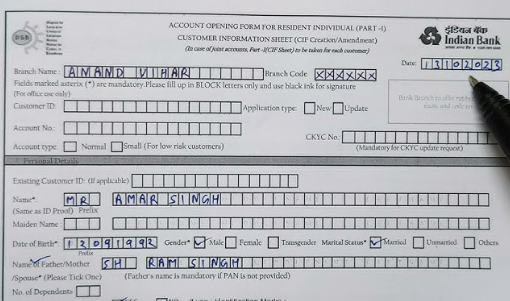 ACCOUNT OPENING FORM FOR RESIDENT INDIVIDUAL (PART -I)
CUSTOMER INFORMATION SHEET (CIF Creation/Amendment)
(In case of joint accounts, Part -I(CIF Sheet) to be taken for each customer)
इंडियन बैंक
Indian Bank
Date: 13102023
Branch Name : ANAND VIHAR Branch Code XXXXXX
Fields marked asterix (*) are mandatory.Please fill up in BLOCK letters only and use black ink for signature
(For office use only)
Customer ID: Application type: New Update
Account No.:
CKYC No.:
Account type : Normal Small (For low risk customers) (Mandatory for CKYC update request)
Personal Details
Existing Customer ID: (if applicable)
Name*: MR AMAR SINGH
(Same as ID Proof) Prefix
Maiden Name :
Date of Birth* 12091992 Gender* Male Female Transgender Marital Status* Married Unmarried Others
Prefix
Name of Father/Mother SH RAM SINGH
/Spouse* (Please Tick One) (Father's name is mandatory if PAN is not provided)
No. of Dependents: